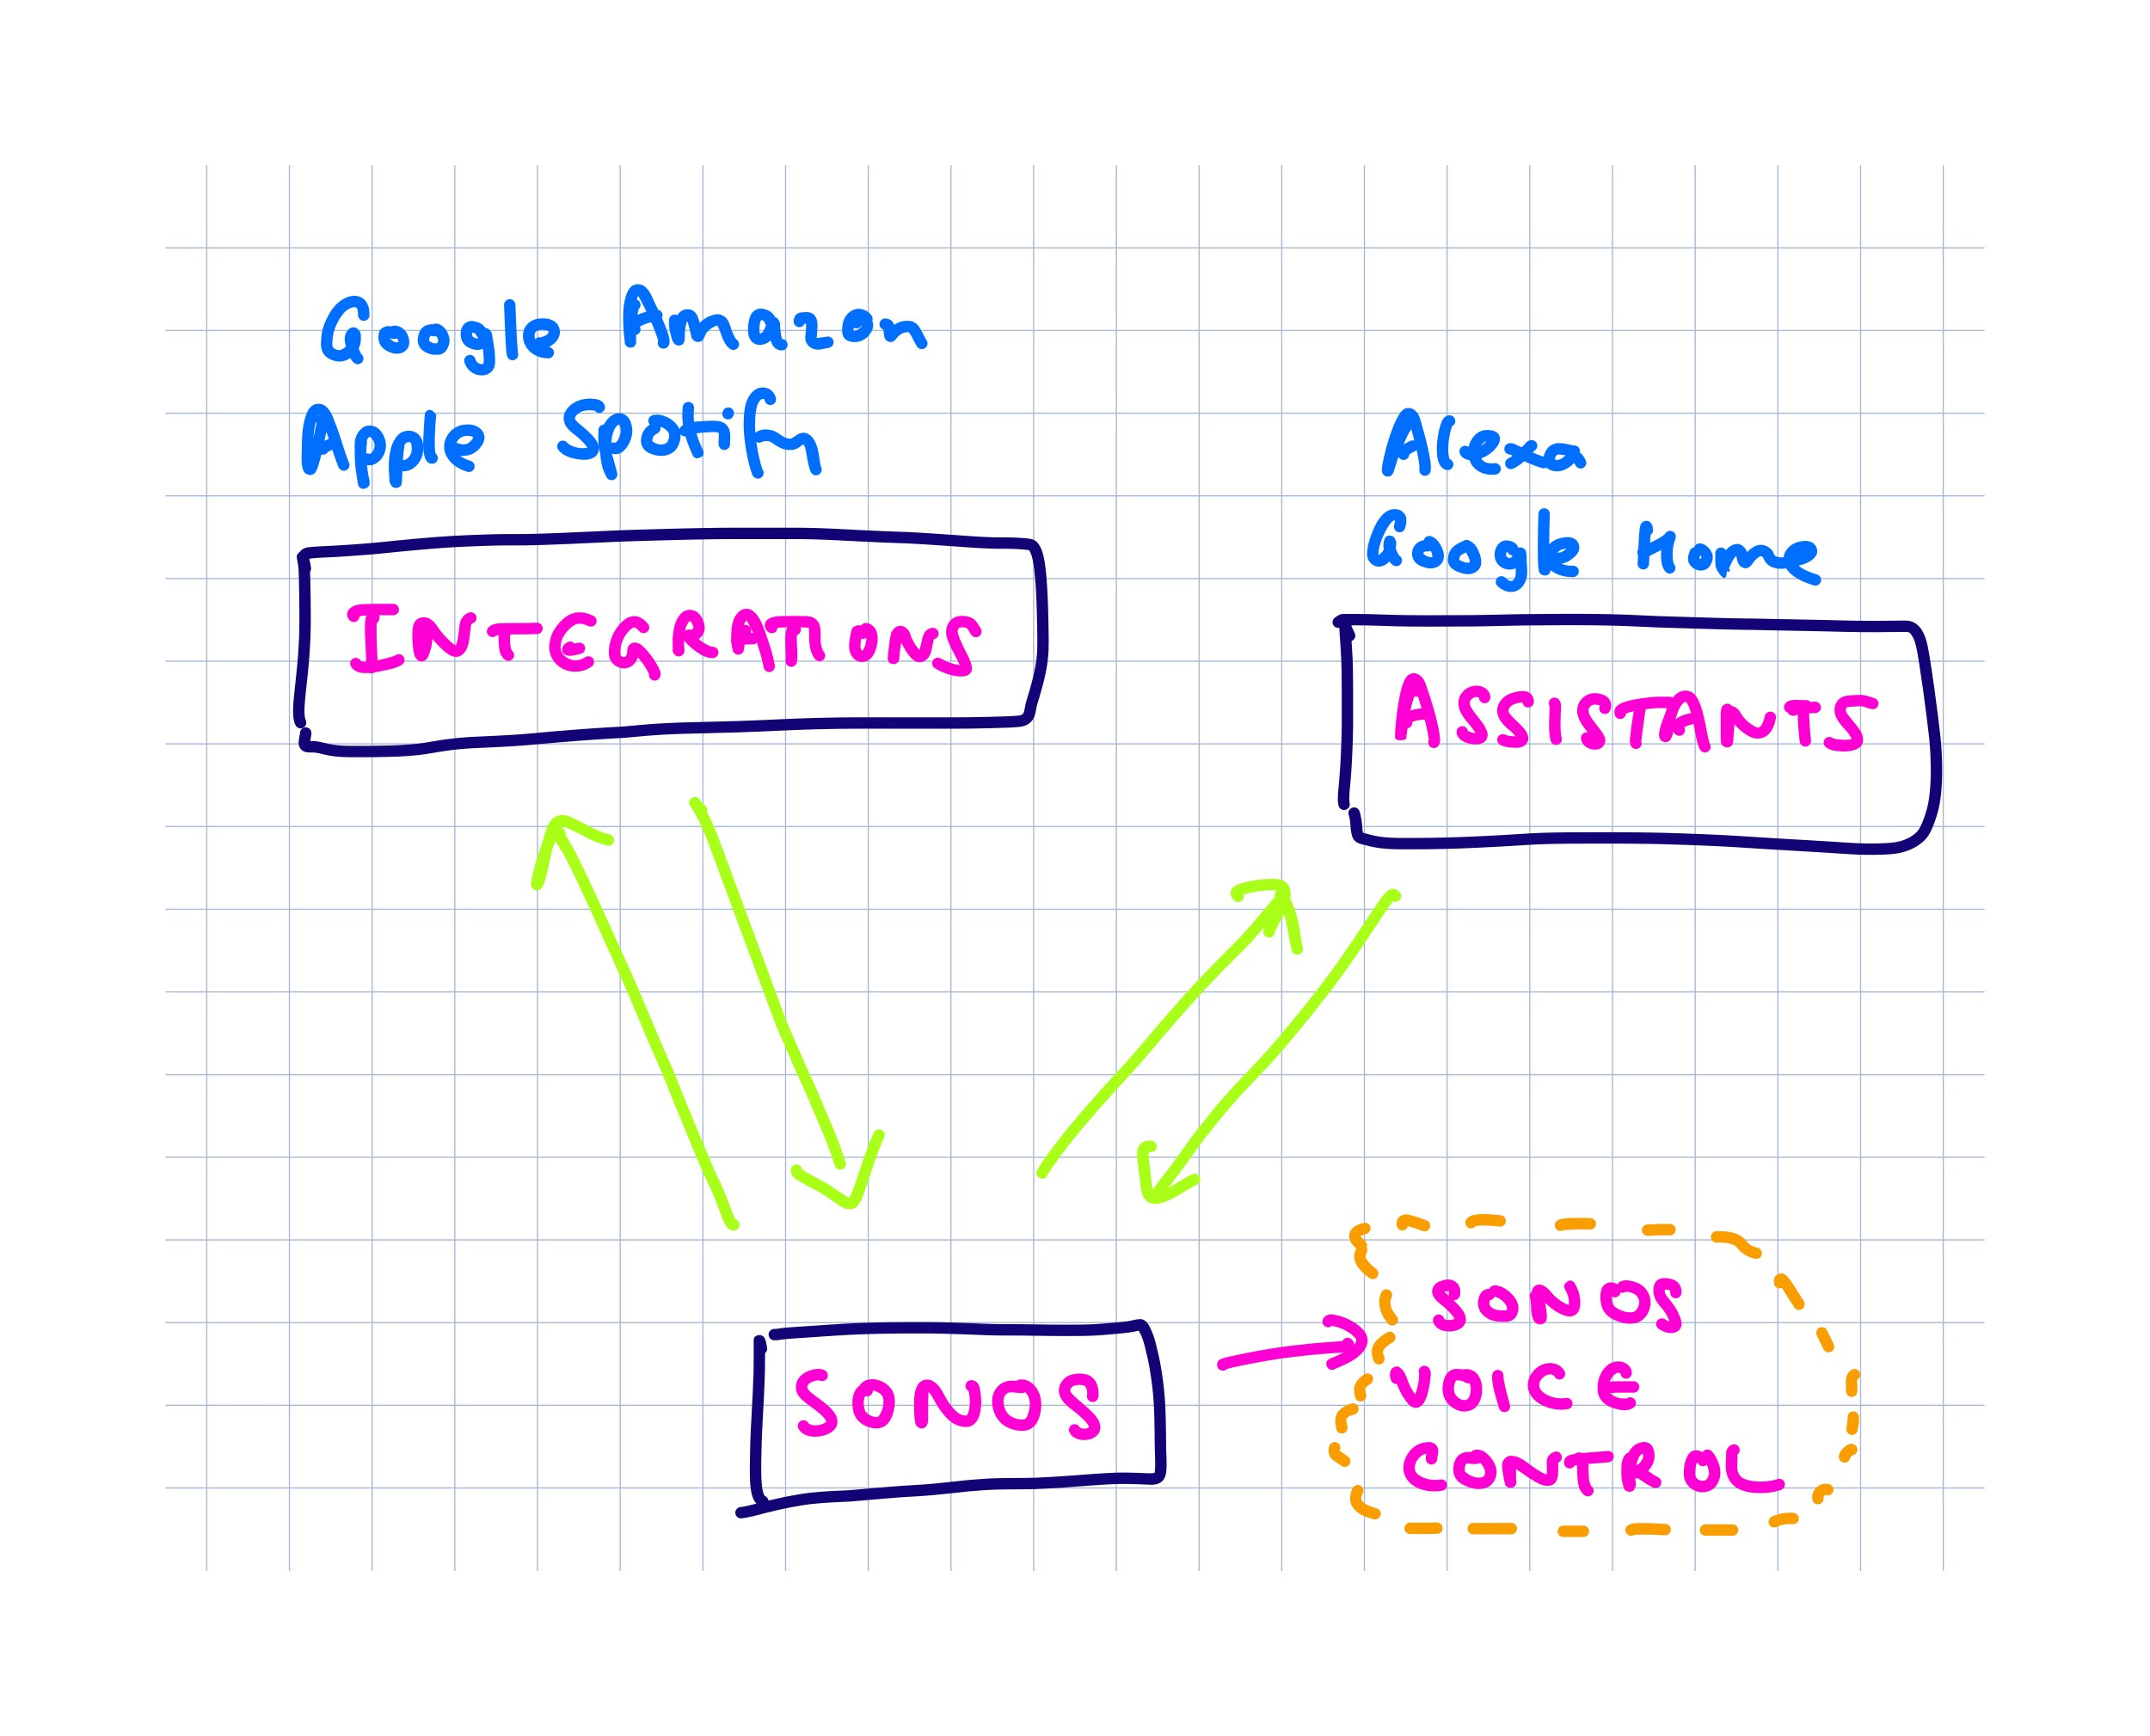 Google Amazon
Apple Spotify
INTEGRATIONS
Alexa
Google Home
ASSISTANTS
SONOS
SONOS
VOICE
CONTROL